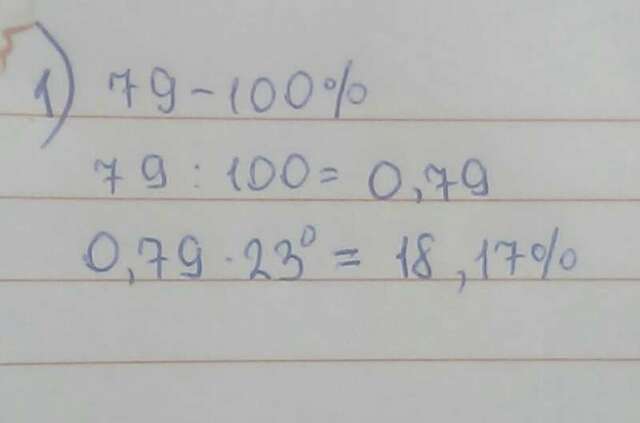 1) 79-100%
79:100=0,79
0,79·23⁰=18,17%